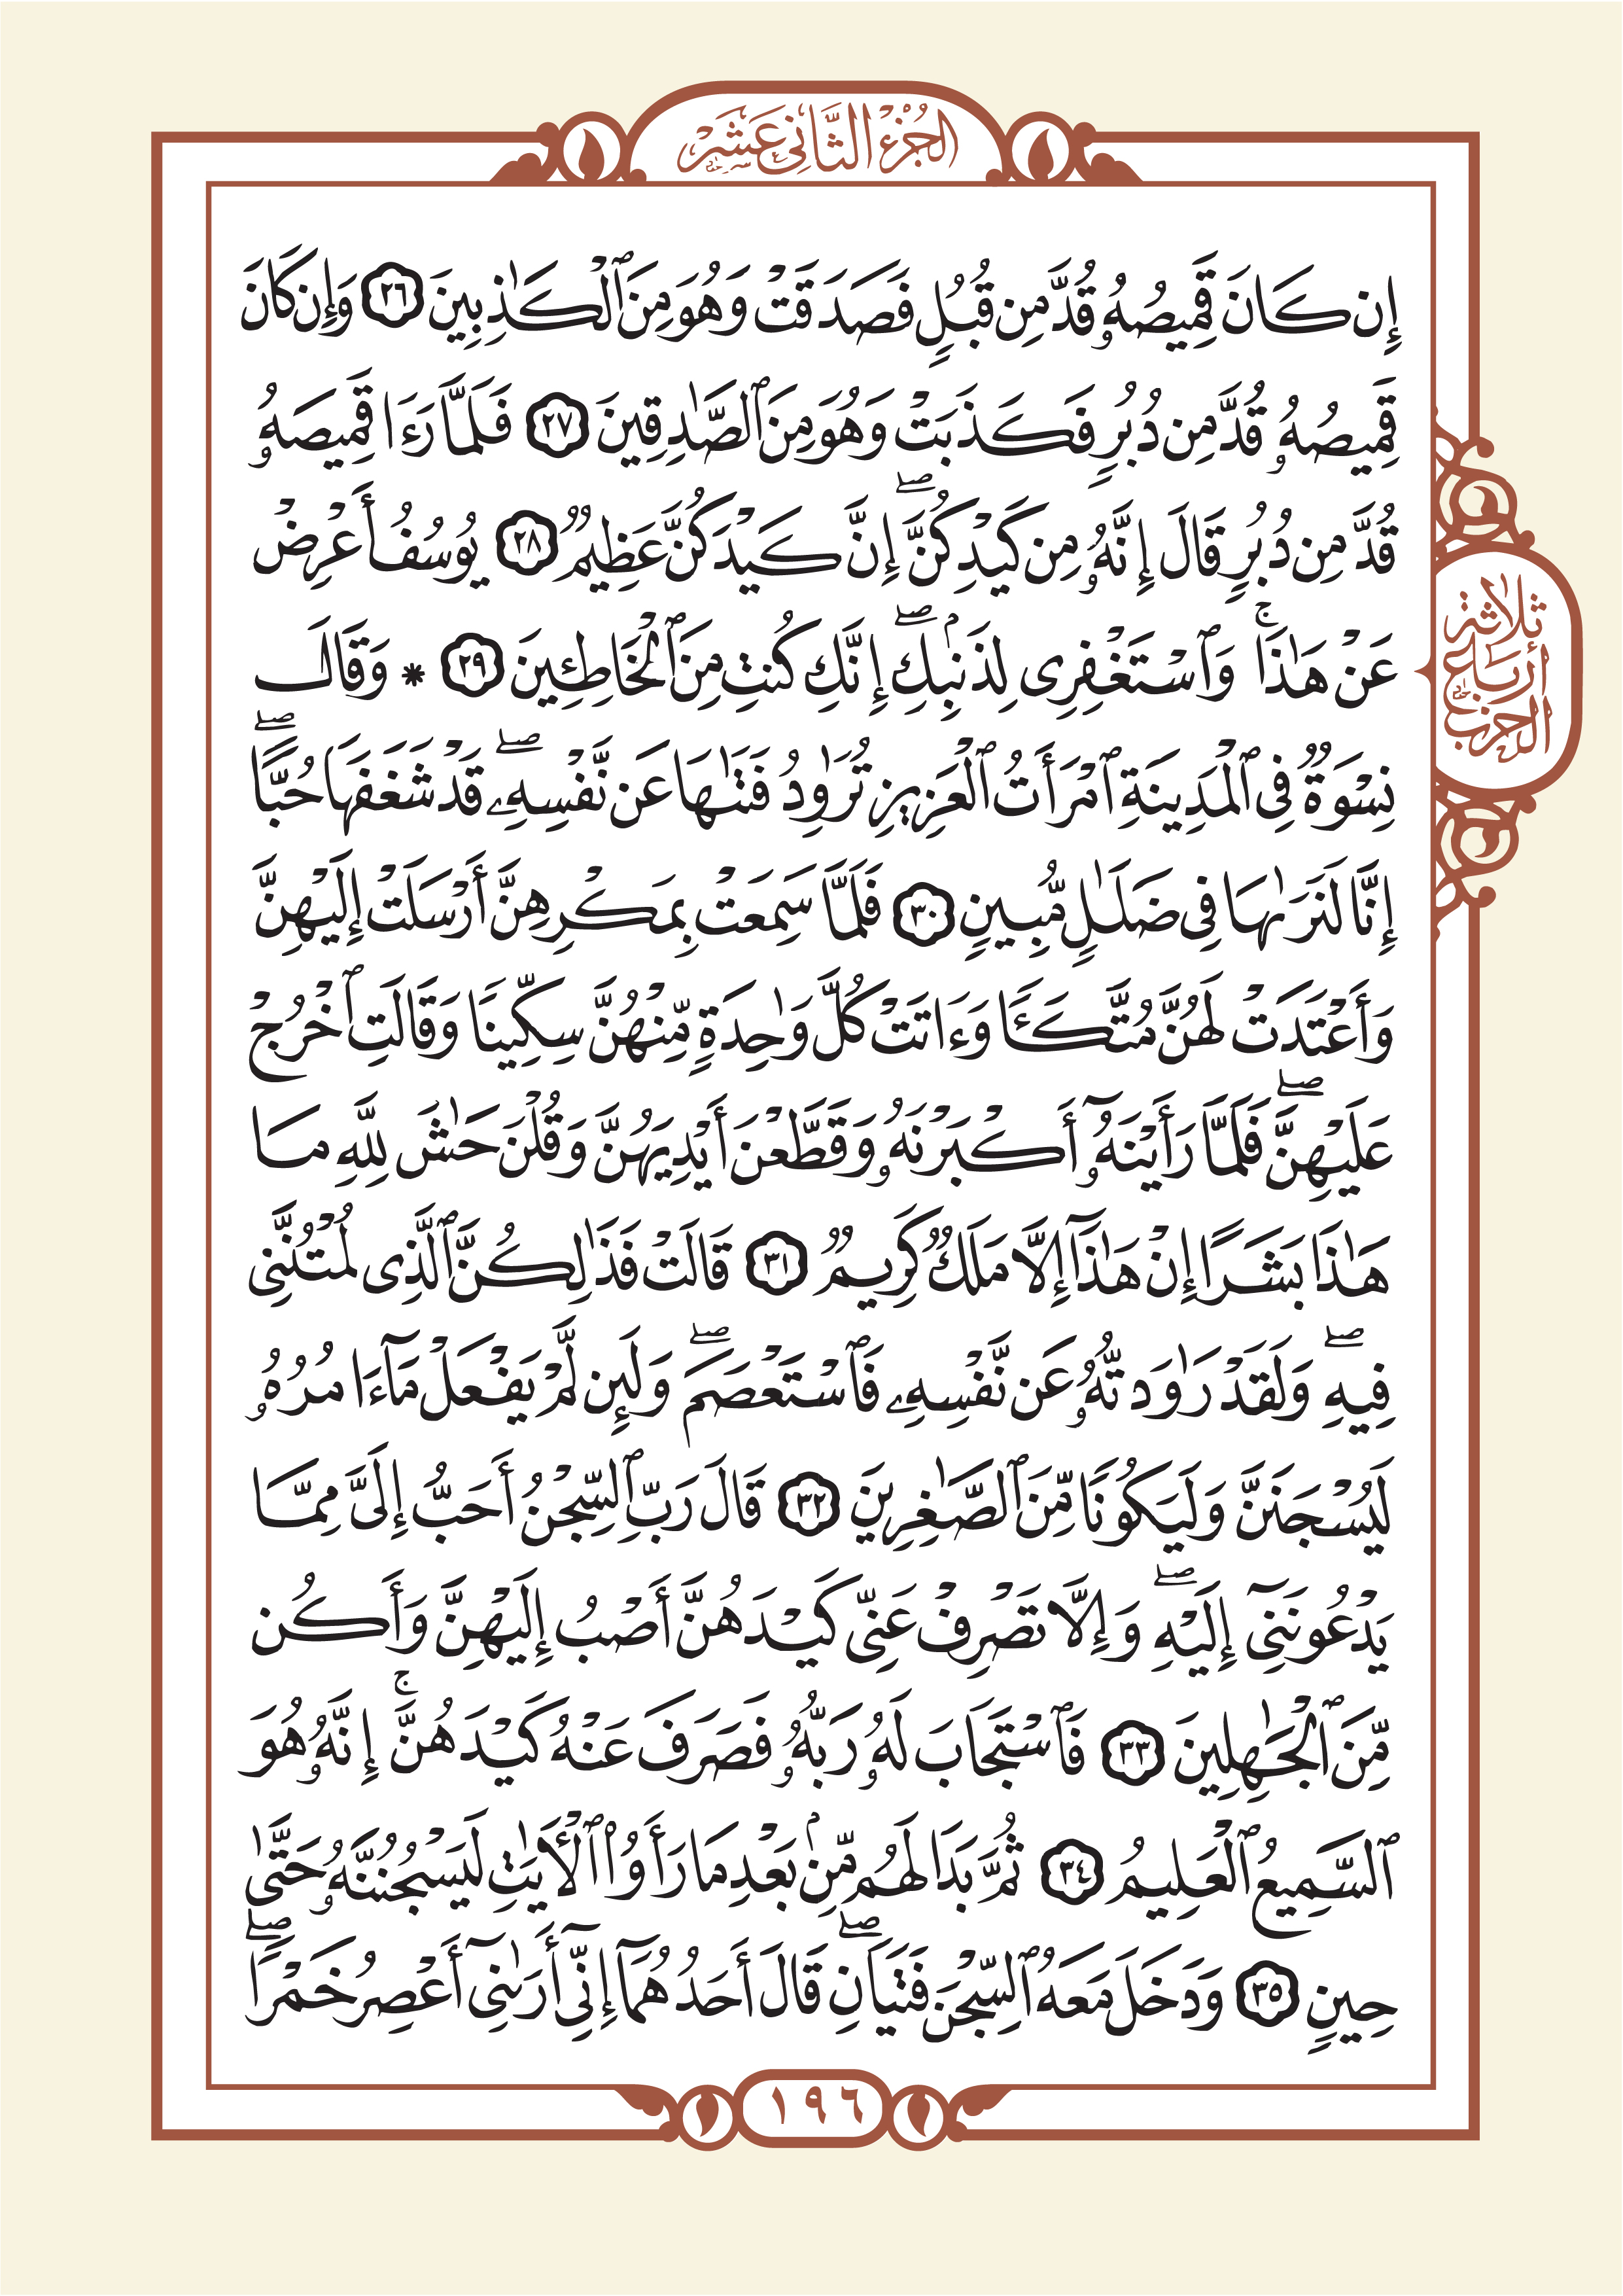 الجزء الثاني عشر
إِن كَانَ قَمِيصُهُۥ قُدَّ مِن قُبُلٍ فَصَدَقَتْ وَهُوَ مِنَ ٱلْكَـٰذِبِينَ ٢٦ وَإِن كَانَ
قَمِيصُهُۥ قُدَّ مِن دُبُرٍ فَكَذَبَتْ وَهُوَ مِنَ ٱلصَّـٰدِقِينَ ٢٧ فَلَمَّا رَءَا قَمِيصَهُۥ
قُدَّ مِن دُبُرٍ قَالَ إِنَّهُۥ مِن كَيْدِكُنَّ ۖ إِنَّ كَيْدَكُنَّ عَظِيمٌ ٢٨ يُوسُفُ أَعْرِضْ
عَنْ هَـٰذَا ۚ وَٱسْتَغْفِرِى لِذَنۢبِكِ ۖ إِنَّكِ كُنتِ مِنَ ٱلْخَاطِـِٔينَ ٢٩ * وَقَالَ
نِسْوَةٌ فِى ٱلْمَدِينَةِ ٱمْرَأَتُ ٱلْعَزِيزِ تُرَٰوِدُ فَتَىٰهَا عَن نَّفْسِهِۦ ۖ قَدْ شَغَفَهَا حُبًّا ۖ
إِنَّا لَنَرَىٰهَا فِى ضَلَـٰلٍ مُّبِينٍ ٣٠ فَلَمَّا سَمِعَتْ بِمَكْرِهِنَّ أَرْسَلَتْ إِلَيْهِنَّ
وَأَعْتَدَتْ لَهُنَّ مُتَّكَـًٔا وَءَاتَتْ كُلَّ وَٰحِدَةٍ مِّنْهُنَّ سِكِّينًا وَقَالَتِ ٱخْرُجْ
عَلَيْهِنَّ ۖ فَلَمَّا رَأَيْنَهُۥٓ أَكْبَرْنَهُۥ وَقَطَّعْنَ أَيْدِيَهُنَّ وَقُلْنَ حَـٰشَ لِلَّهِ مَا
هَـٰذَا بَشَرًا إِنْ هَـٰذَآ إِلَّا مَلَكٌ كَرِيمٌ ٣١ قَالَتْ فَذَٰلِكُنَّ ٱلَّذِى لُمْتُنَّنِى
فِيهِ ۖ وَلَقَدْ رَٰوَدتُّهُۥ عَن نَّفْسِهِۦ فَٱسْتَعْصَمَ ۖ وَلَئِن لَّمْ يَفْعَلْ مَآ ءَامُرُهُۥ
لَيُسْجَنَنَّ وَلَيَكُونًا مِّنَ ٱلصَّـٰغِرِينَ ٣٢ قَالَ رَبِّ ٱلسِّجْنُ أَحَبُّ إِلَىَّ مِمَّا
يَدْعُونَنِىٓ إِلَيْهِ ۖ وَإِلَّا تَصْرِفْ عَنِّى كَيْدَهُنَّ أَصْبُ إِلَيْهِنَّ وَأَكُن
مِّنَ ٱلْجَـٰهِلِينَ ٣٣ فَٱسْتَجَابَ لَهُۥ رَبُّهُۥ فَصَرَفَ عَنْهُ كَيْدَهُنَّ ۚ إِنَّهُۥ هُوَ
ٱلسَّمِيعُ ٱلْعَلِيمُ ٣٤ ثُمَّ بَدَا لَهُم مِّنۢ بَعْدِ مَا رَأَوُا۟ ٱلْـَٔايَـٰتِ لَيَسْجُنُنَّهُۥ حَتَّىٰ
حِينٍ ٣٥ وَدَخَلَ مَعَهُ ٱلسِّجْنَ فَتَيَانِ ۖ قَالَ أَحَدُهُمَآ إِنِّىٓ أَرَىٰنِىٓ أَعْصِرُ خَمْرًا ۖ
ثلاثة
أرباع
الحزب
١٩٦